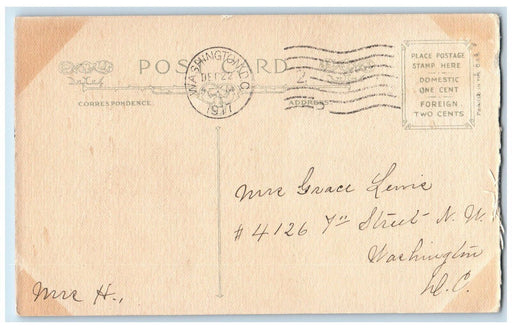 POST CARD
WASHINGTON, D.C.
1917
CORRESPONDENCE
ADDRESS
PLACE POSTAGE
STAMP HERE
DOMESTIC
ONE CENT
FOREIGN
TWO CENTS
Mrs Grace Lewis
#4126 7th Street N.W.
Washington
D.C.
Mrs H.,